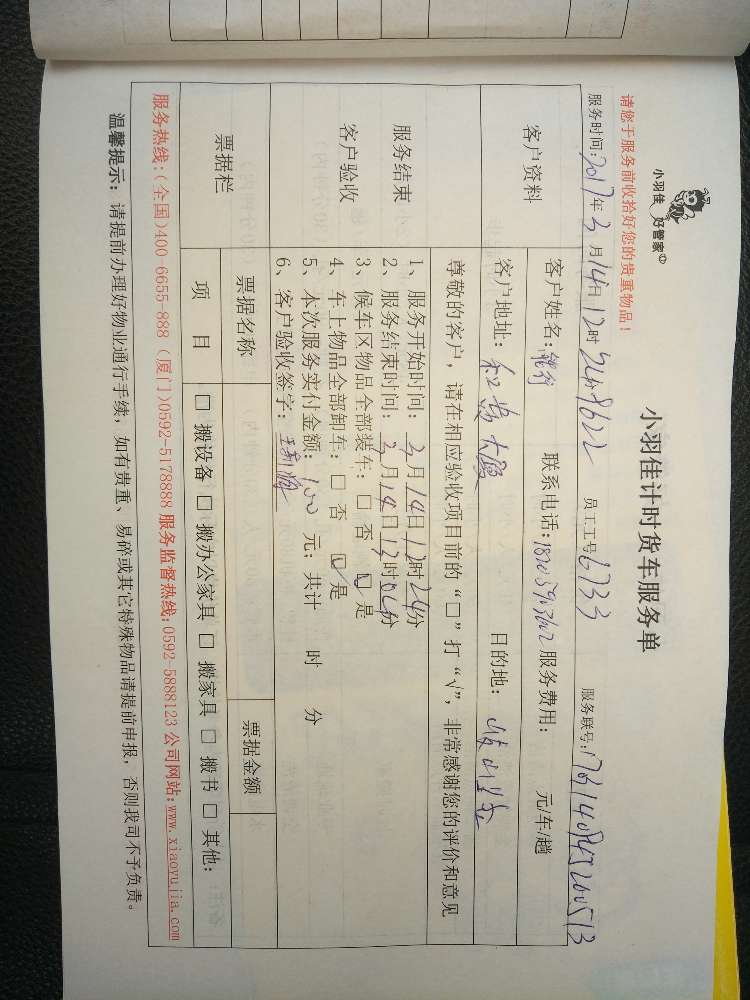 小羽佳 好管家
小羽佳计时货车服务单
请您于服务前收拾好您的贵重物品！
服务时间：2017年3月14日12时24分 员工工号6733 服务联号：
客户资料
客户姓名： 联系电话： 服务费用： 元/车/趟
客户地址： 大厦 目的地：
服务结束
客户验收
尊敬的客户，请在相应验收项目前的“□”打“√”，非常感谢您的评价和意见
1、服务开始时间：3月14日12时24分
2、服务结束时间：3月14日13时04分
3、候车区物品全部装车：□ 否 ☑ 是
4、车上物品全部卸车：□ 否 ☑ 是
5、本次服务实付金额：100 元；共计 时 分
6、客户验收签字：
票据栏
票据名称 票据金额
项 目 □ 搬设备 □ 搬办公家具 □ 搬家具 □ 搬书 □ 其他：
服务热线：(全国)400-6655-888 (厦门)0592-5178888 服务监督热线：0592-5888123 公司网站：www.xiaoyujia.com
温馨提示：请提前办理好物业通行手续，如有贵重、易碎或其它特殊物品请提前申报，否则我司不予负责。